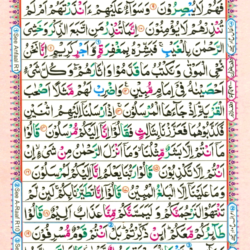 فَهُمْ لَا يُبْصِرُونَ وَسَوَآءٌ عَلَيْهِمْ ءَاَنْذَرْتَهُمْ اَمْ لَمْ
تُنْذِرْهُمْ لَا يُؤْمِنُونَ اِنَّمَا تُنْذِرُ مَنِ اتَّبَعَ الذِّكْرَ وَخَشِيَ
الرَّحْمٰنَ بِالْغَيْبِ فَبَشِّرْهُ بِمَغْفِرَةٍ وَّاَجْرٍ كَرِيمٍ اِنَّا نَحْنُ
نُحْيِ الْمَوْتٰى وَنَكْتُبُ مَا قَدَّمُوْا وَاٰثَارَهُمْ وَكُلَّ شَيْءٍ
اَحْصَيْنٰهُ فِيْٓ اِمَامٍ مُّبِيْنٍ وَاضْرِبْ لَهُمْ مَّثَلًا اَصْحٰبَ
الْقَرْيَةِ اِذْ جَآءَهَا الْمُرْسَلُوْنَ اِذْ اَرْسَلْنَآ اِلَيْهِمُ اثْنَيْنِ
فَكَذَّبُوْهُمَا فَعَزَّزْنَا بِثَالِثٍ فَقَالُوْٓا اِنَّآ اِلَيْكُمْ مُّرْسَلُوْنَ قَالُوْا
مَآ اَنْتُمْ اِلَّا بَشَرٌ مِّثْلُنَا وَمَآ اَنْزَلَ الرَّحْمٰنُ مِنْ شَيْءٍ اِنْ
اَنْتُمْ اِلَّا تَكْذِبُوْنَ قَالُوْا رَبُّنَا يَعْلَمُ اِنَّآ اِلَيْكُمْ لَمُرْسَلُوْنَ
وَمَا عَلَيْنَآ اِلَّا الْبَلٰغُ الْمُبِيْنُ قَالُوْٓا اِنَّا تَطَيَّرْنَا بِكُمْ لَئِنْ لَّمْ
تَنْتَهُوْا لَنَرْجُمَنَّكُمْ وَلَيَمَسَّنَّكُمْ مِّنَّا عَذَابٌ اَلِيْمٌ قَالُوْا
طَآئِرُكُمْ مَّعَكُمْ اَئِنْ ذُكِّرْتُمْ بَلْ اَنْتُمْ قَوْمٌ مُّسْرِفُوْنَ